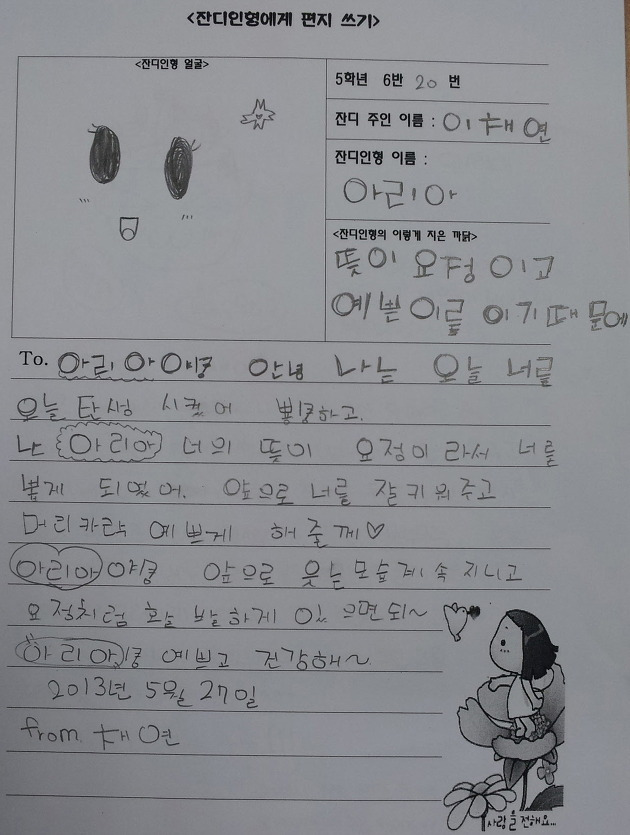 <잔디인형에게 편지 쓰기>
<잔디인형 얼굴>
5학년 6반 20 번
잔디 주인 이름 : 이채연
잔디인형 이름 :
아리아
<잔디인형의 이렇게 지은 까닭>
뜻이 요정 이고
예쁜이름 이기때문에
To. 아리아 안녕 나는 오늘 너를
오늘 탄생 시켰어
난 아리아 너의 뜻이 요정이라서 너를
되었어. 앞으로 너를 잘키워주고
머리카락 예쁘게 해줄께♡
아리아 앞으로 웃는모습계속 지니고
요정처럼 활발하게 있으면되~
아리아 예쁘고 건강해~
2013년 5월 27일
from. 채연
사랑을 전해요...